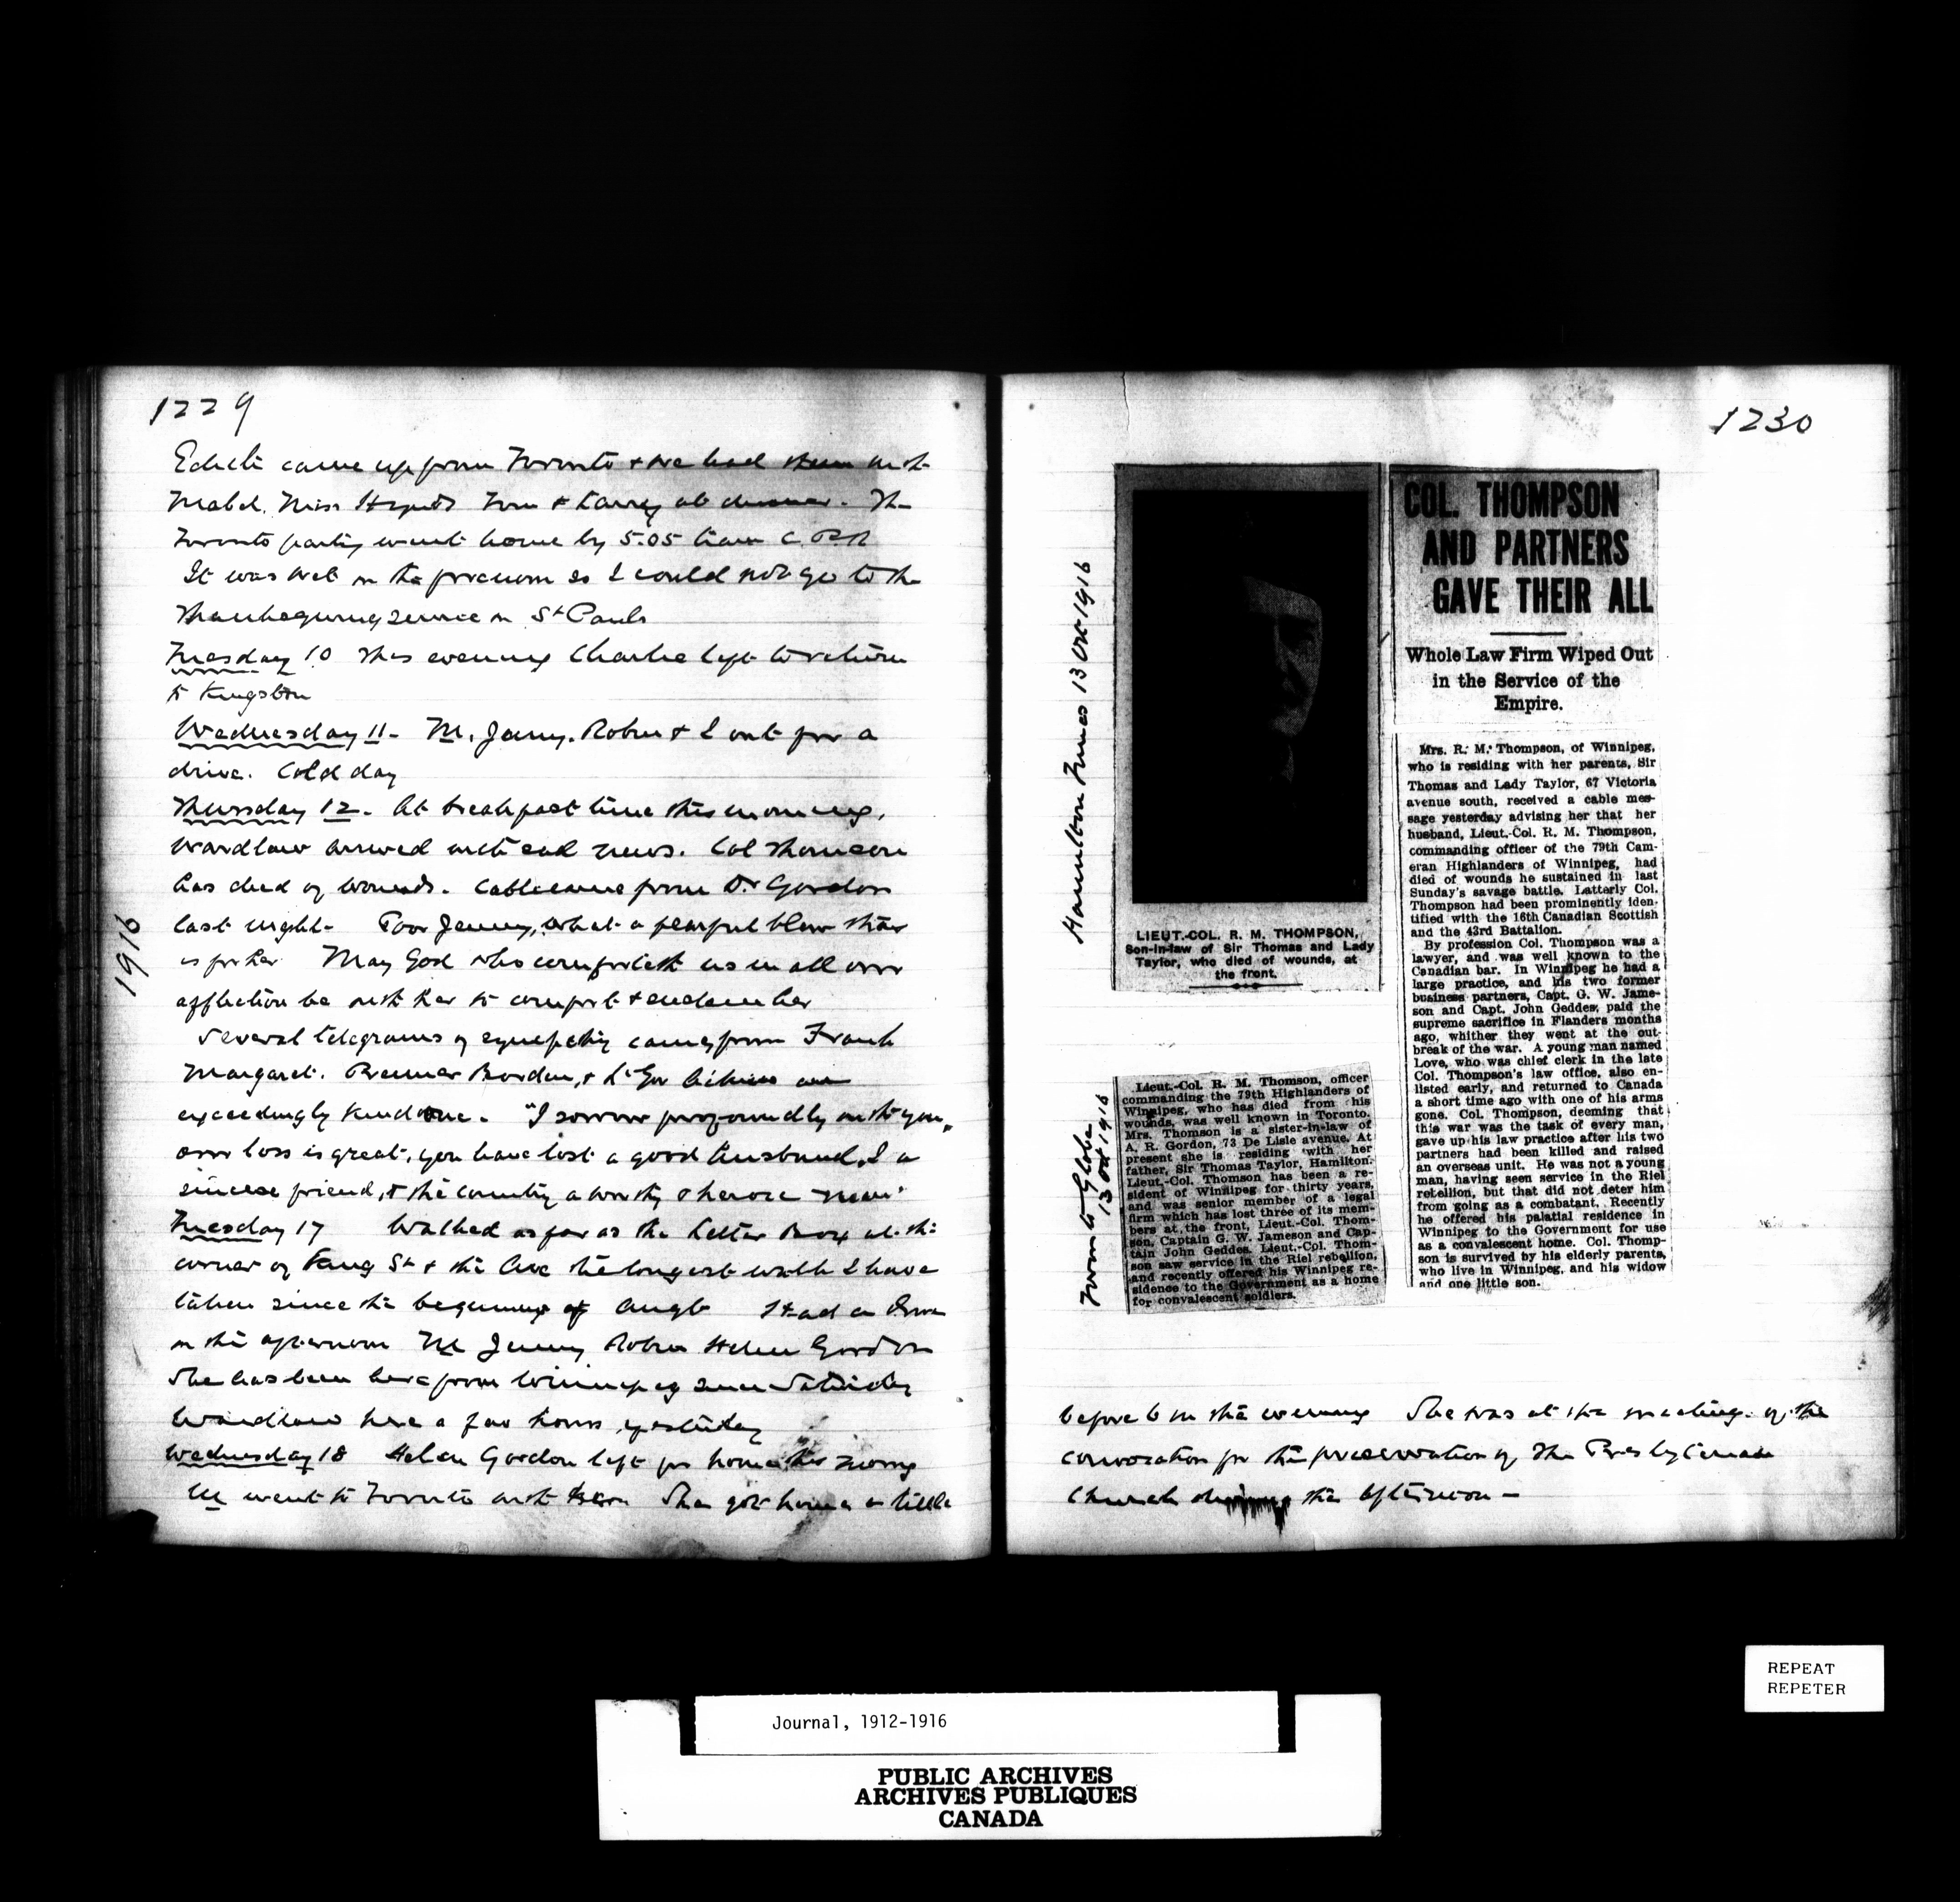 1229
Edith came up from Toronto + we had them with
Mabel. Miss Tom + Harry at dinner. The
Toronto party went home by 5.05 train C.P.R
It was wet in the forenoon so I could not go to the
Thanksgiving service in St Pauls
Tuesday 10 This evening Charlie left to return
to Kingston
Wednesday 11 - M, Jenny. Robin + I out for a
drive. Cold day
Thursday 12. At breakfast time this morning,
Wardlaw arrived with sad news. Col Thomson
has died of wounds. Cable came from Dr Gordon
last night - Poor Jenny, what a fearful blow this
is for her May God who comforteth us in all our
affliction be with her to comfort +
1916
Several telegrams of sympathy came from Frank
Margaret. Premier Borden, + Lt Gov Aikins an
exceedingly kind one. "I sorrow profoundly with you,
our loss is great, you have lost a good husband, I a
sincere friend, + the country a worthy + heroic man"
Tuesday 17 Walked as far as the Letter Box at the
corner of King St + the Ave the longest walk I have
taken since the beginning of Augt Had a drive
in the afternoon M Jenny Robin Helen Gordon
She has been here from Winnipeg since Saturday
Wardlaw here a few hours yesterday
Wednesday 18 Helen Gordon left for home this morng
M went to Toronto with her She got home a little
1230
Hamilton Times 13 Oct 1916
LIEUT.-COL. R. M. THOMPSON,
Son-in-law of Sir Thomas and Lady
Taylor, who died of wounds, at
the front.
Toronto Globe
13 Oct 1916
Lieut.-Col. R. M. Thomson, officer
commanding the 79th Highlanders of
Winnipeg, who has died from his
wounds, was well known in Toronto.
Mrs. Thomson is a sister-in-law of
A. R. Gordon, 73 De Lisle avenue. At
present she is residing with her
father, Sir Thomas Taylor, Hamilton.
Lieut.-Col. Thomson has been a re-
sident of Winnipeg for thirty years,
and was senior member of a legal
firm which has lost three of its mem-
bers at the front, Lieut.-Col. Thom-
son, Captain G. W. Jameson and Cap-
tain John Geddes. Lieut.-Col. Thom-
son saw service in the Riel rebellion,
and recently offered his Winnipeg re-
sidence to the Government as a home
for convalescent soldiers.
COL. THOMPSON
AND PARTNERS
GAVE THEIR ALL
Whole Law Firm Wiped Out
in the Service of the
Empire.
Mrs. R. M. Thompson, of Winnipeg,
who is residing with her parents, Sir
Thomas and Lady Taylor, 67 Victoria
avenue south, received a cable mes-
sage yesterday advising her that her
husband, Lieut.-Col. R. M. Thompson,
commanding officer of the 79th Cam-
eran Highlanders of Winnipeg, had
died of wounds he sustained in last
Sunday's savage battle. Latterly Col.
Thompson had been prominently iden-
tified with the 16th Canadian Scottish
and the 43rd Battalion.
By profession Col. Thompson was a
lawyer, and was well known to the
Canadian bar. In Winnipeg he had a
large practice, and his two former
business partners, Capt. G. W. Jame-
son and Capt. John Geddes, paid the
supreme sacrifice in Flanders months
ago, whither they went at the out-
break of the war. A young man named
Love, who was chief clerk in the late
Col. Thompson's law office, also en-
listed early, and returned to Canada
a short time ago with one of his arms
gone. Col. Thompson, deeming that
this war was the task of every man,
gave up his law practice after his two
partners had been killed and raised
an overseas unit. He was not a young
man, having seen service in the Riel
rebellion, but that did not deter him
from going as a combatant. Recently
he offered his palatial residence in
Winnipeg to the Government for use
as a convalescent home. Col. Thomp-
son is survived by his elderly parents,
who live in Winnipeg, and his widow
and one little son.
before 6 in the evening She was at the meeting of the
convocation for the preservation of The Presbyterian
Church during the afternoon -
REPEAT
REPETER
Journal, 1912-1916
PUBLIC ARCHIVES
ARCHIVES PUBLIQUES
CANADA